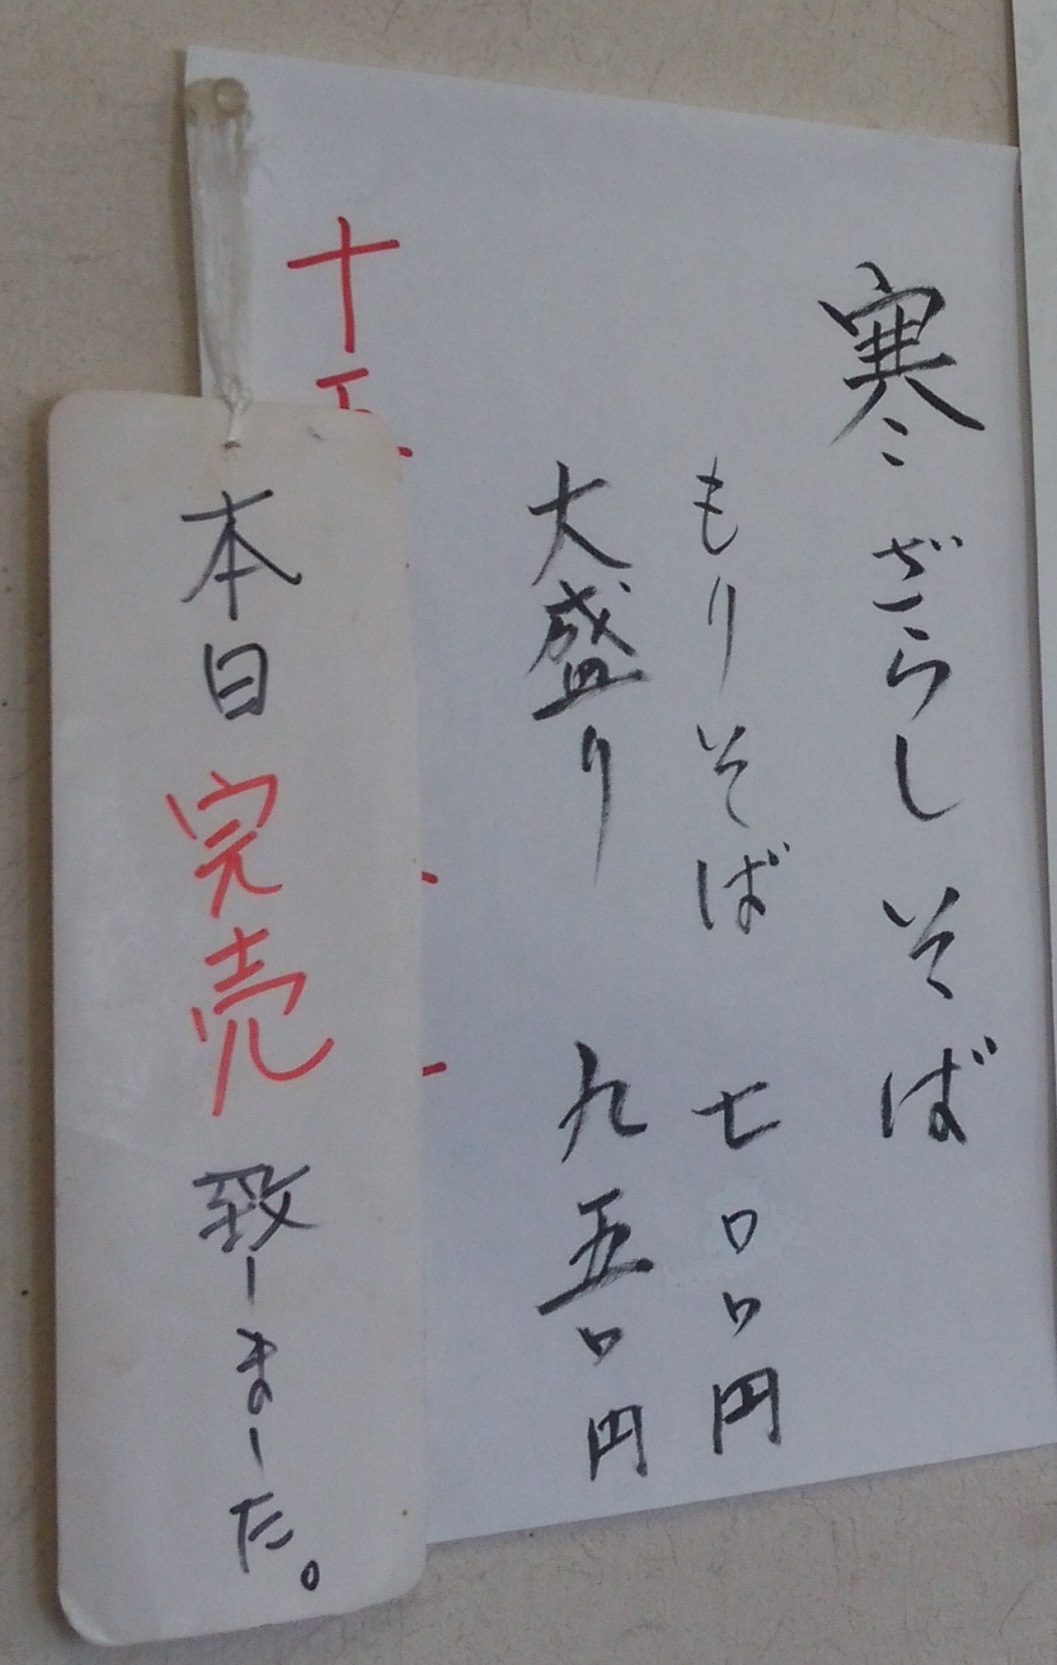 寒ざらしそば
もりそば 七〇〇円
大盛り 九五〇円
十五
本日完売致しました。